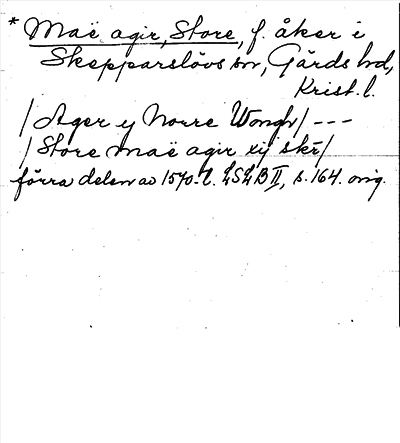 * Maë agir, Store, f. åker i
Skepparslövs sn, Gärds hd,
Krist. l.
/ Ager y Norre Wongh / ---
/ Store maë agir xij skr /
förra delen av 1570-t. LSLB II, s. 164. orig.